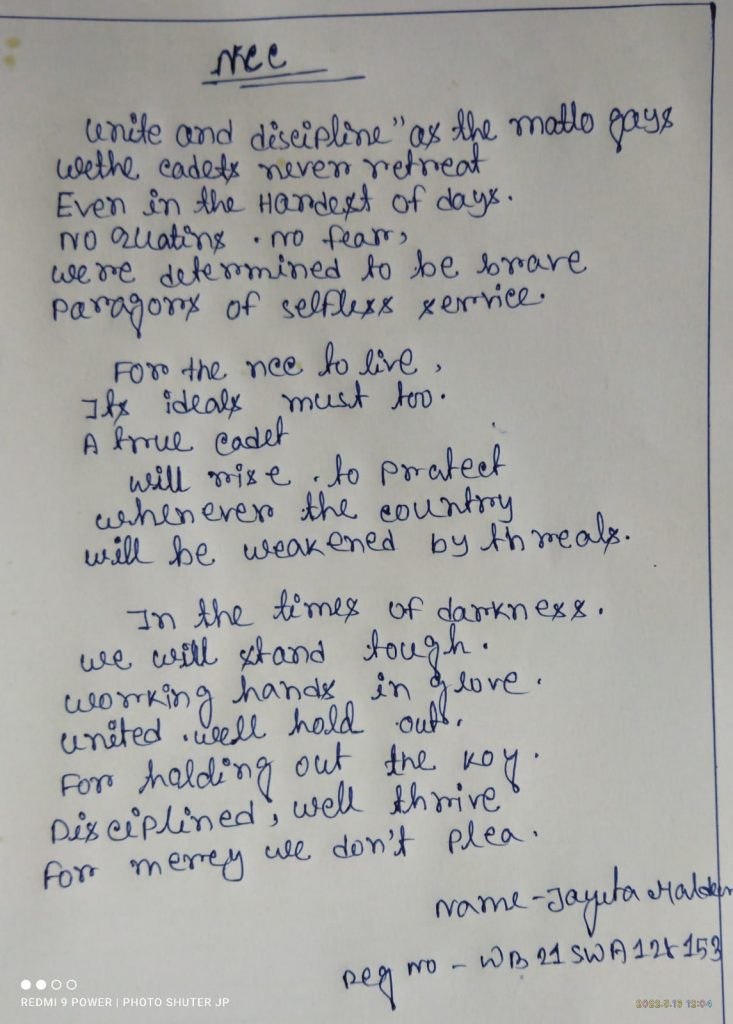 NCC
Unite and discipline" as the matto gays
wethe cadets never retreat
Even in the Hardest of days.
No Quatins . no fear,
we're determined to be brave
Paragons of selfless service.
For the ncc to live,
Its ideals must too.
A true cadet
will rise . to Pratect
whenever the country
will be weakened by threals.
In the times of darkness.
we will stand tough.
working hands in glove.
united .well hold out.
For halding out the Koy.
Disciplined, well thrive
For mercy we don't plea.
Name - Jayita Halder
Reg no - WB 21 SWA 128153
REDMI 9 POWER | PHOTO SHUTER JP
12:04